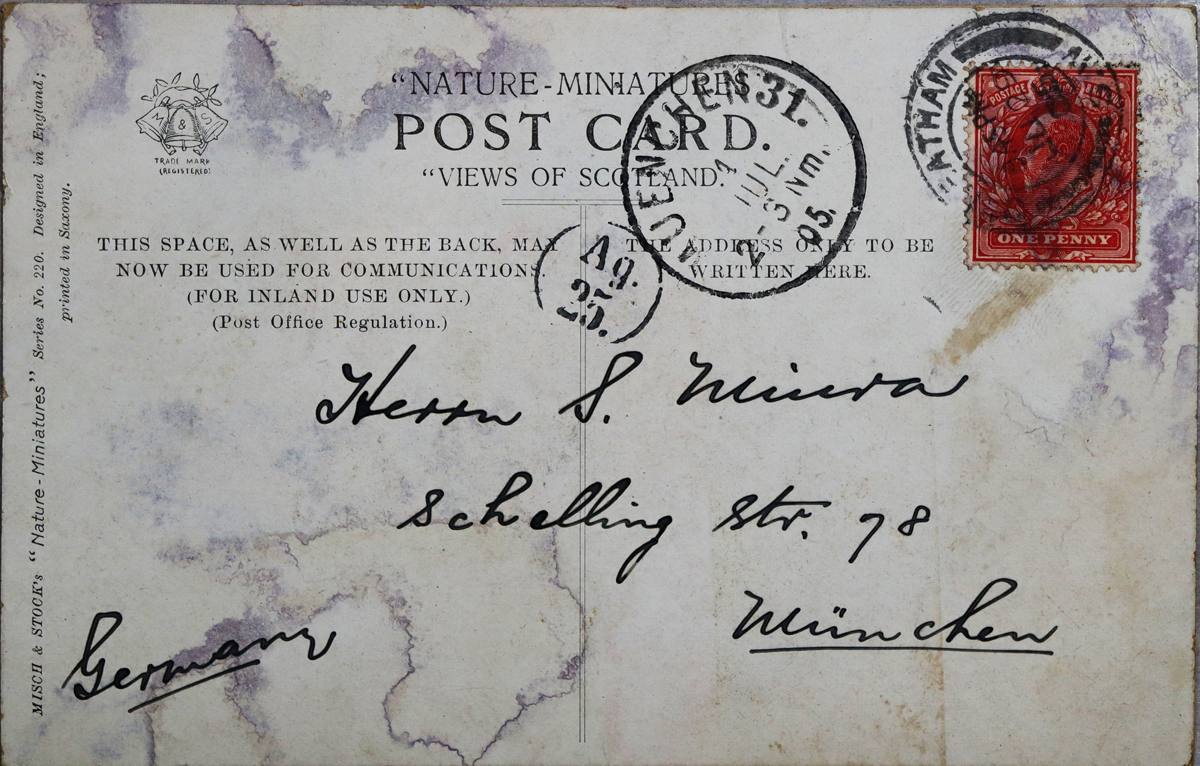 "NATURE-MINIATURES
POST CARD.
"VIEWS OF SCOTLAND."
M & S
TRADE MARK
(REGISTERED)
THIS SPACE, AS WELL AS THE BACK, MAY
NOW BE USED FOR COMMUNICATIONS.
(FOR INLAND USE ONLY.)
(Post Office Regulation.)
THE ADDRESS ONLY TO BE
WRITTEN HERE.
MUENCHEN 31.
1
JUL.
2-3 Nm.
05.
Ag.
25.
POSTAGE
ONE PENNY
Herrn S. Miura
Schelling Str. 78
München
Germany
MISCH & STOCK'S "Nature-Miniatures" Series No. 220. Designed in England;
printed in Saxony.